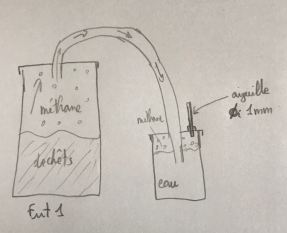 méthane
déchêts
Fut 1
méthane
eau
aiguille
Ø 1mm